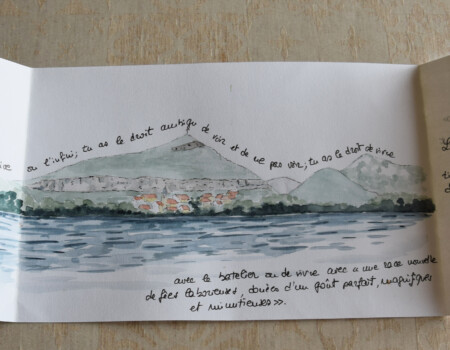 ou l'infini; tu as le droit antique de voir et de ne pas voir; tu as le droit de vivre
avec le batelier ou de vivre avec « une race nouvelle
de fées laborieuses, douées d'un goût parfait, magnifiques
et minutieuses ».